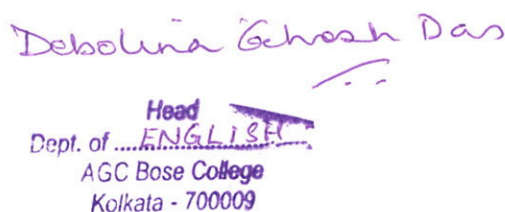 Debolina Ghosh Das
Head
Dept. of ....ENGLISH....
AGC Bose College
Kolkata - 700009